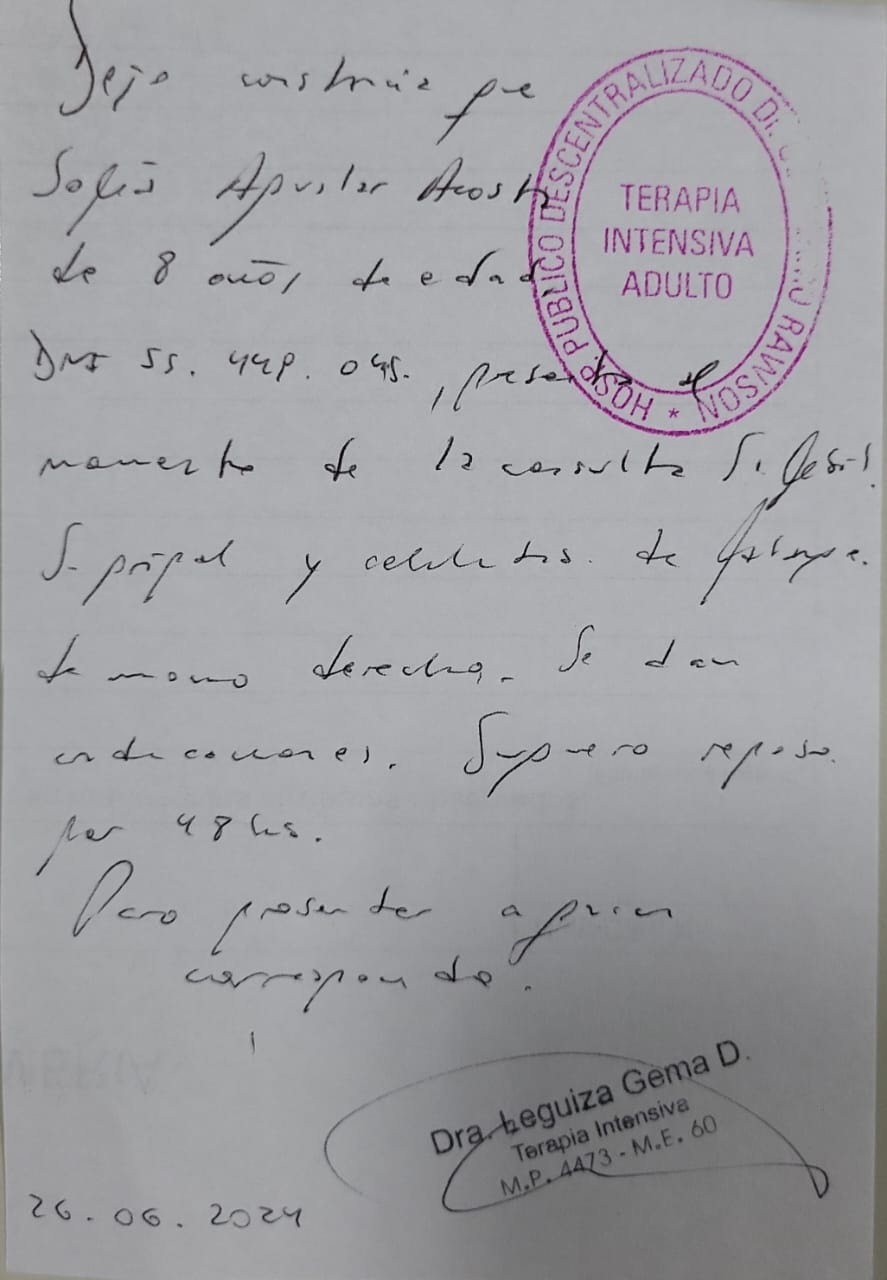 Dejo constancia que
Sofía Aguilar Acosta
de 8 años de edad
DNI 55. 449. 045. , presenta al
momento de la consulta S. febril
S. gripal y celulitis de falange
de mano derecha. Se dan
indicaciones. Sugiero reposo
por 48 hs.
Para presentar a quien
corresponda.
26.06.2024
HOSP. PUBLICO DESCENTRALIZADO DR. RAWSON *
TERAPIA
INTENSIVA
ADULTO
Dra. Leguiza Gema D.
Terapia Intensiva
M.P. 4473 - M.E. 60